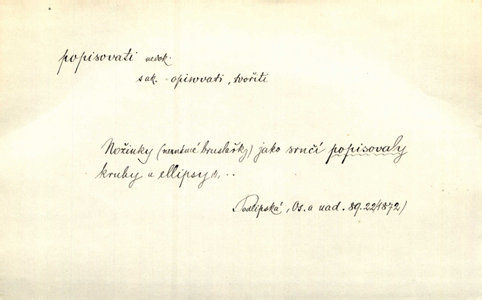 popisovati nedok.
s ak. opisovati, tvořiti
Nožinky (neznámé bruslařky) jako srnčí popisovaly
kruhy a ellipsy...
Podlipská, Os. a nad. 89.22(1872)